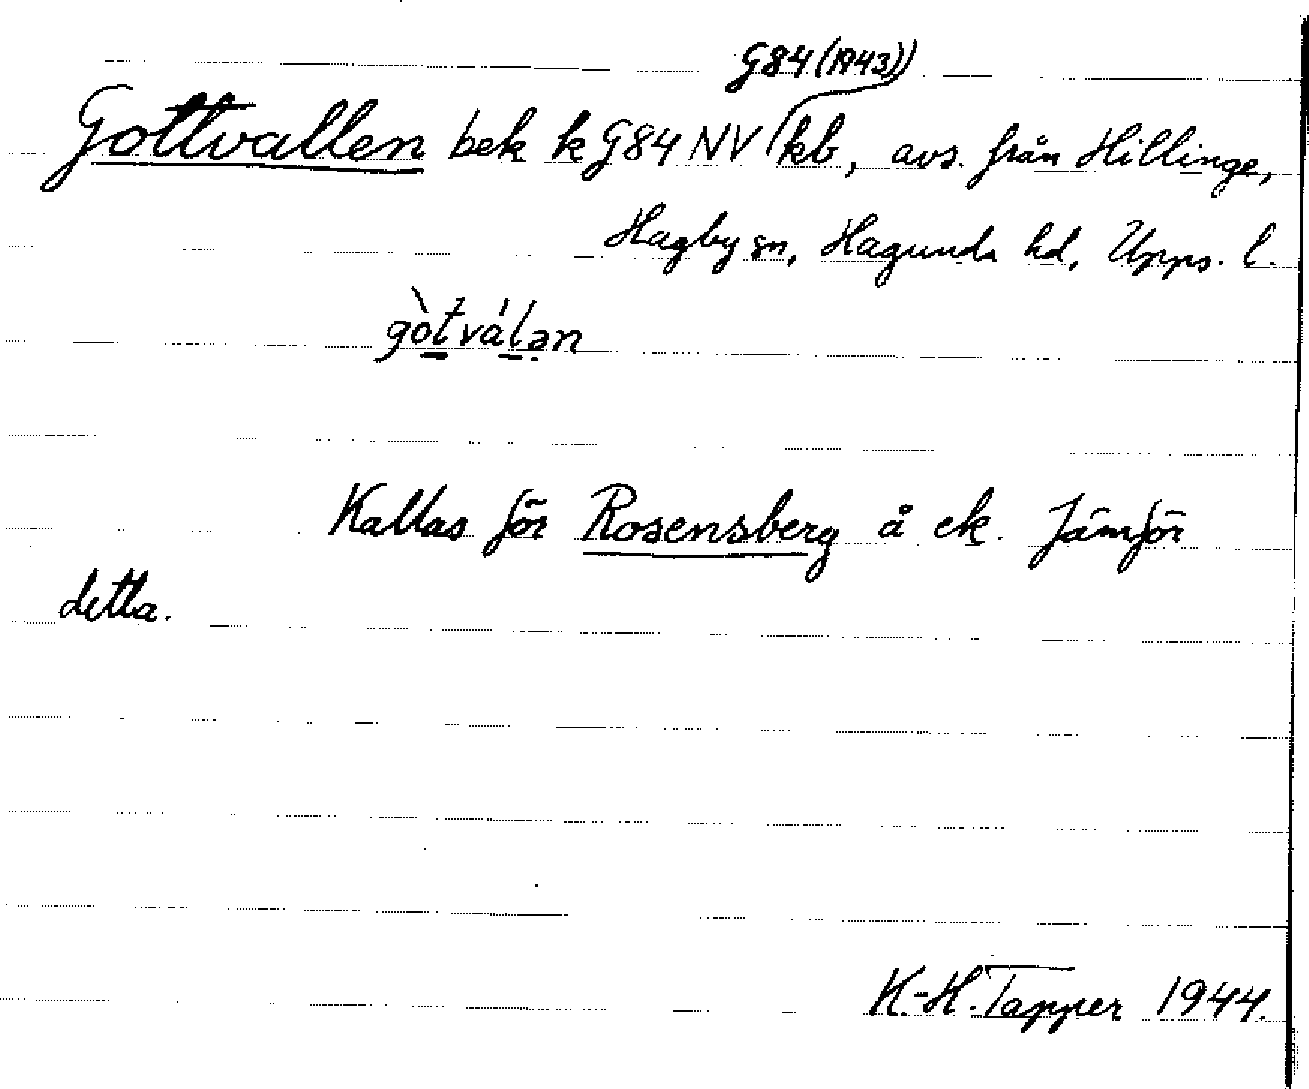 G84 (1943))
Gottvallen bek k G84 NV (kb, avs. från Hillinge,
Hagby sn, Hagunda hd, Upps. l.
gòtválan
Kallas för Rosensberg å ek. Jämför
detta.
K-H. Tapper 1944.